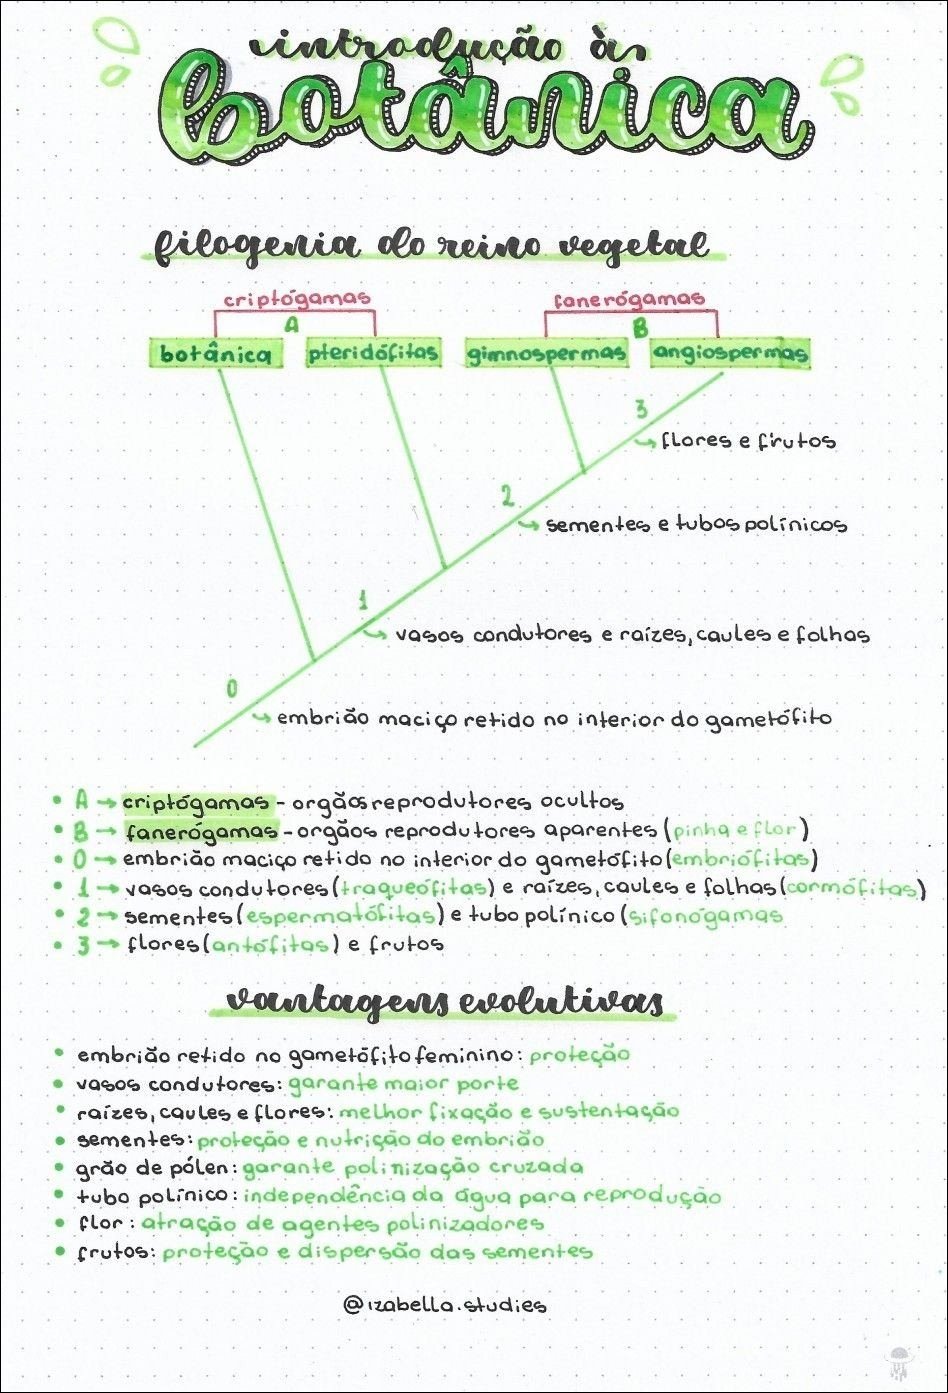 introdução às
botânica
filogenia do reino vegetal
criptógamas
fanerógamas
A
B
botânica
pteridófitas
gimnospermas
angiospermas
3
flores e frutos
2
sementes e tubos polínicos
1
vasos condutores e raízes, caules e folhas
0
embrião maciço retido no interior do gametófito
• A → criptógamas - orgãos reprodutores ocultos
• B → fanerógamas - orgãos reprodutores aparentes (pinha e flor)
• 0 → embrião maciço retido no interior do gametófito (embriófitas)
• 1 → vasos condutores (traqueófitas) e raízes, caules e folhas (cormófitas)
• 2 → sementes (espermatófitas) e tubo polínico (sifonógamas
• 3 → flores (antófitas) e frutos
vantagens evolutivas
• embrião retido no gametófito feminino: proteção
• vasos condutores: garante maior porte
• raízes, caules e flores: melhor fixação e sustentação
• sementes: proteção e nutrição do embrião
• grão de pólen: garante polinização cruzada
• tubo polínico: independência da água para reprodução
• flor: atração de agentes polinizadores
• frutos: proteção e dispersão das sementes
@izabella.studies